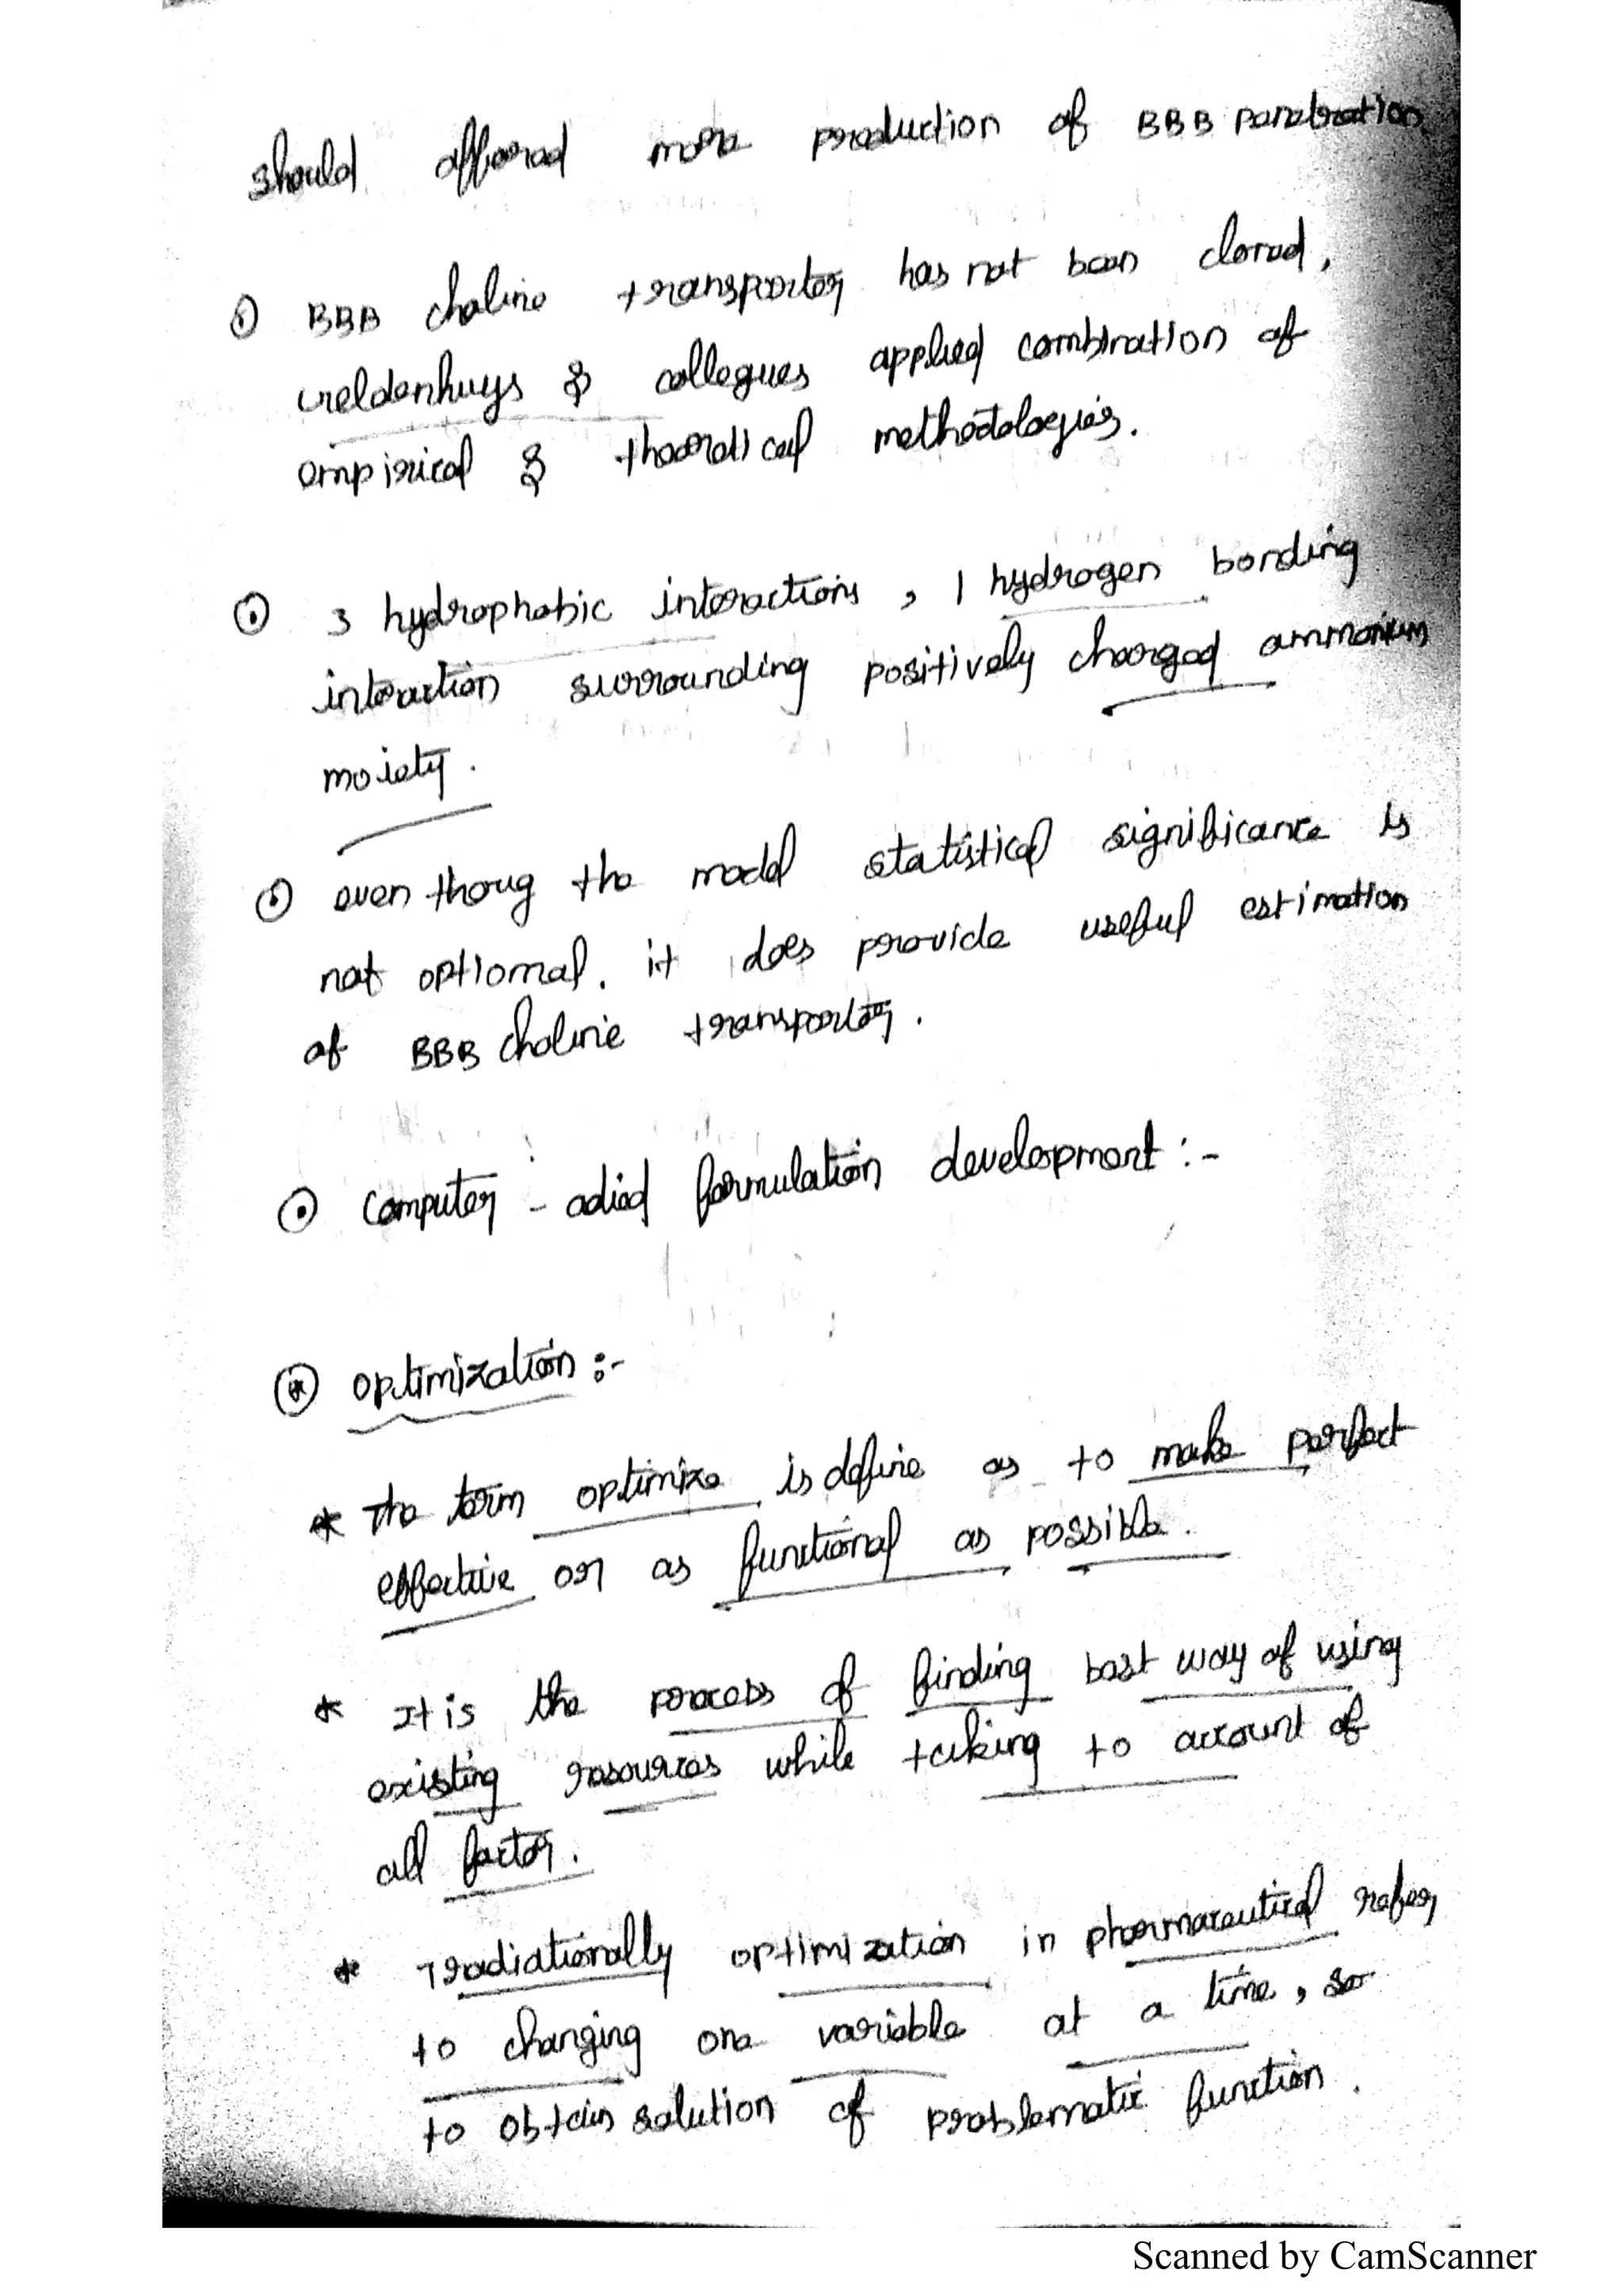 should afforad more production of BBB panetration
BBB choline transporter has not been clorod,
weldenhuys & collegues applied combination of
empirical & theoretical methodologies.
3 hydrophobic interactions, 1 hydrogen bonding
interaction surrounding positively charged ammonium
moiety.
even thoug the model statistical significance is
not optiomal. it does provide useful estimation
of BBB choline transporter.
Computer - adied formulation development :-
optimization :-
* The term optimize is define as to make perfect
effective or as functional as possible.
* It is the process of finding best way of using
existing resources while taking to account of
all factor.
* Tradiationally optimization in pharmaceutical refer
to changing one variable at a time, so
to obtain solution of problematic function.
Scanned by CamScanner